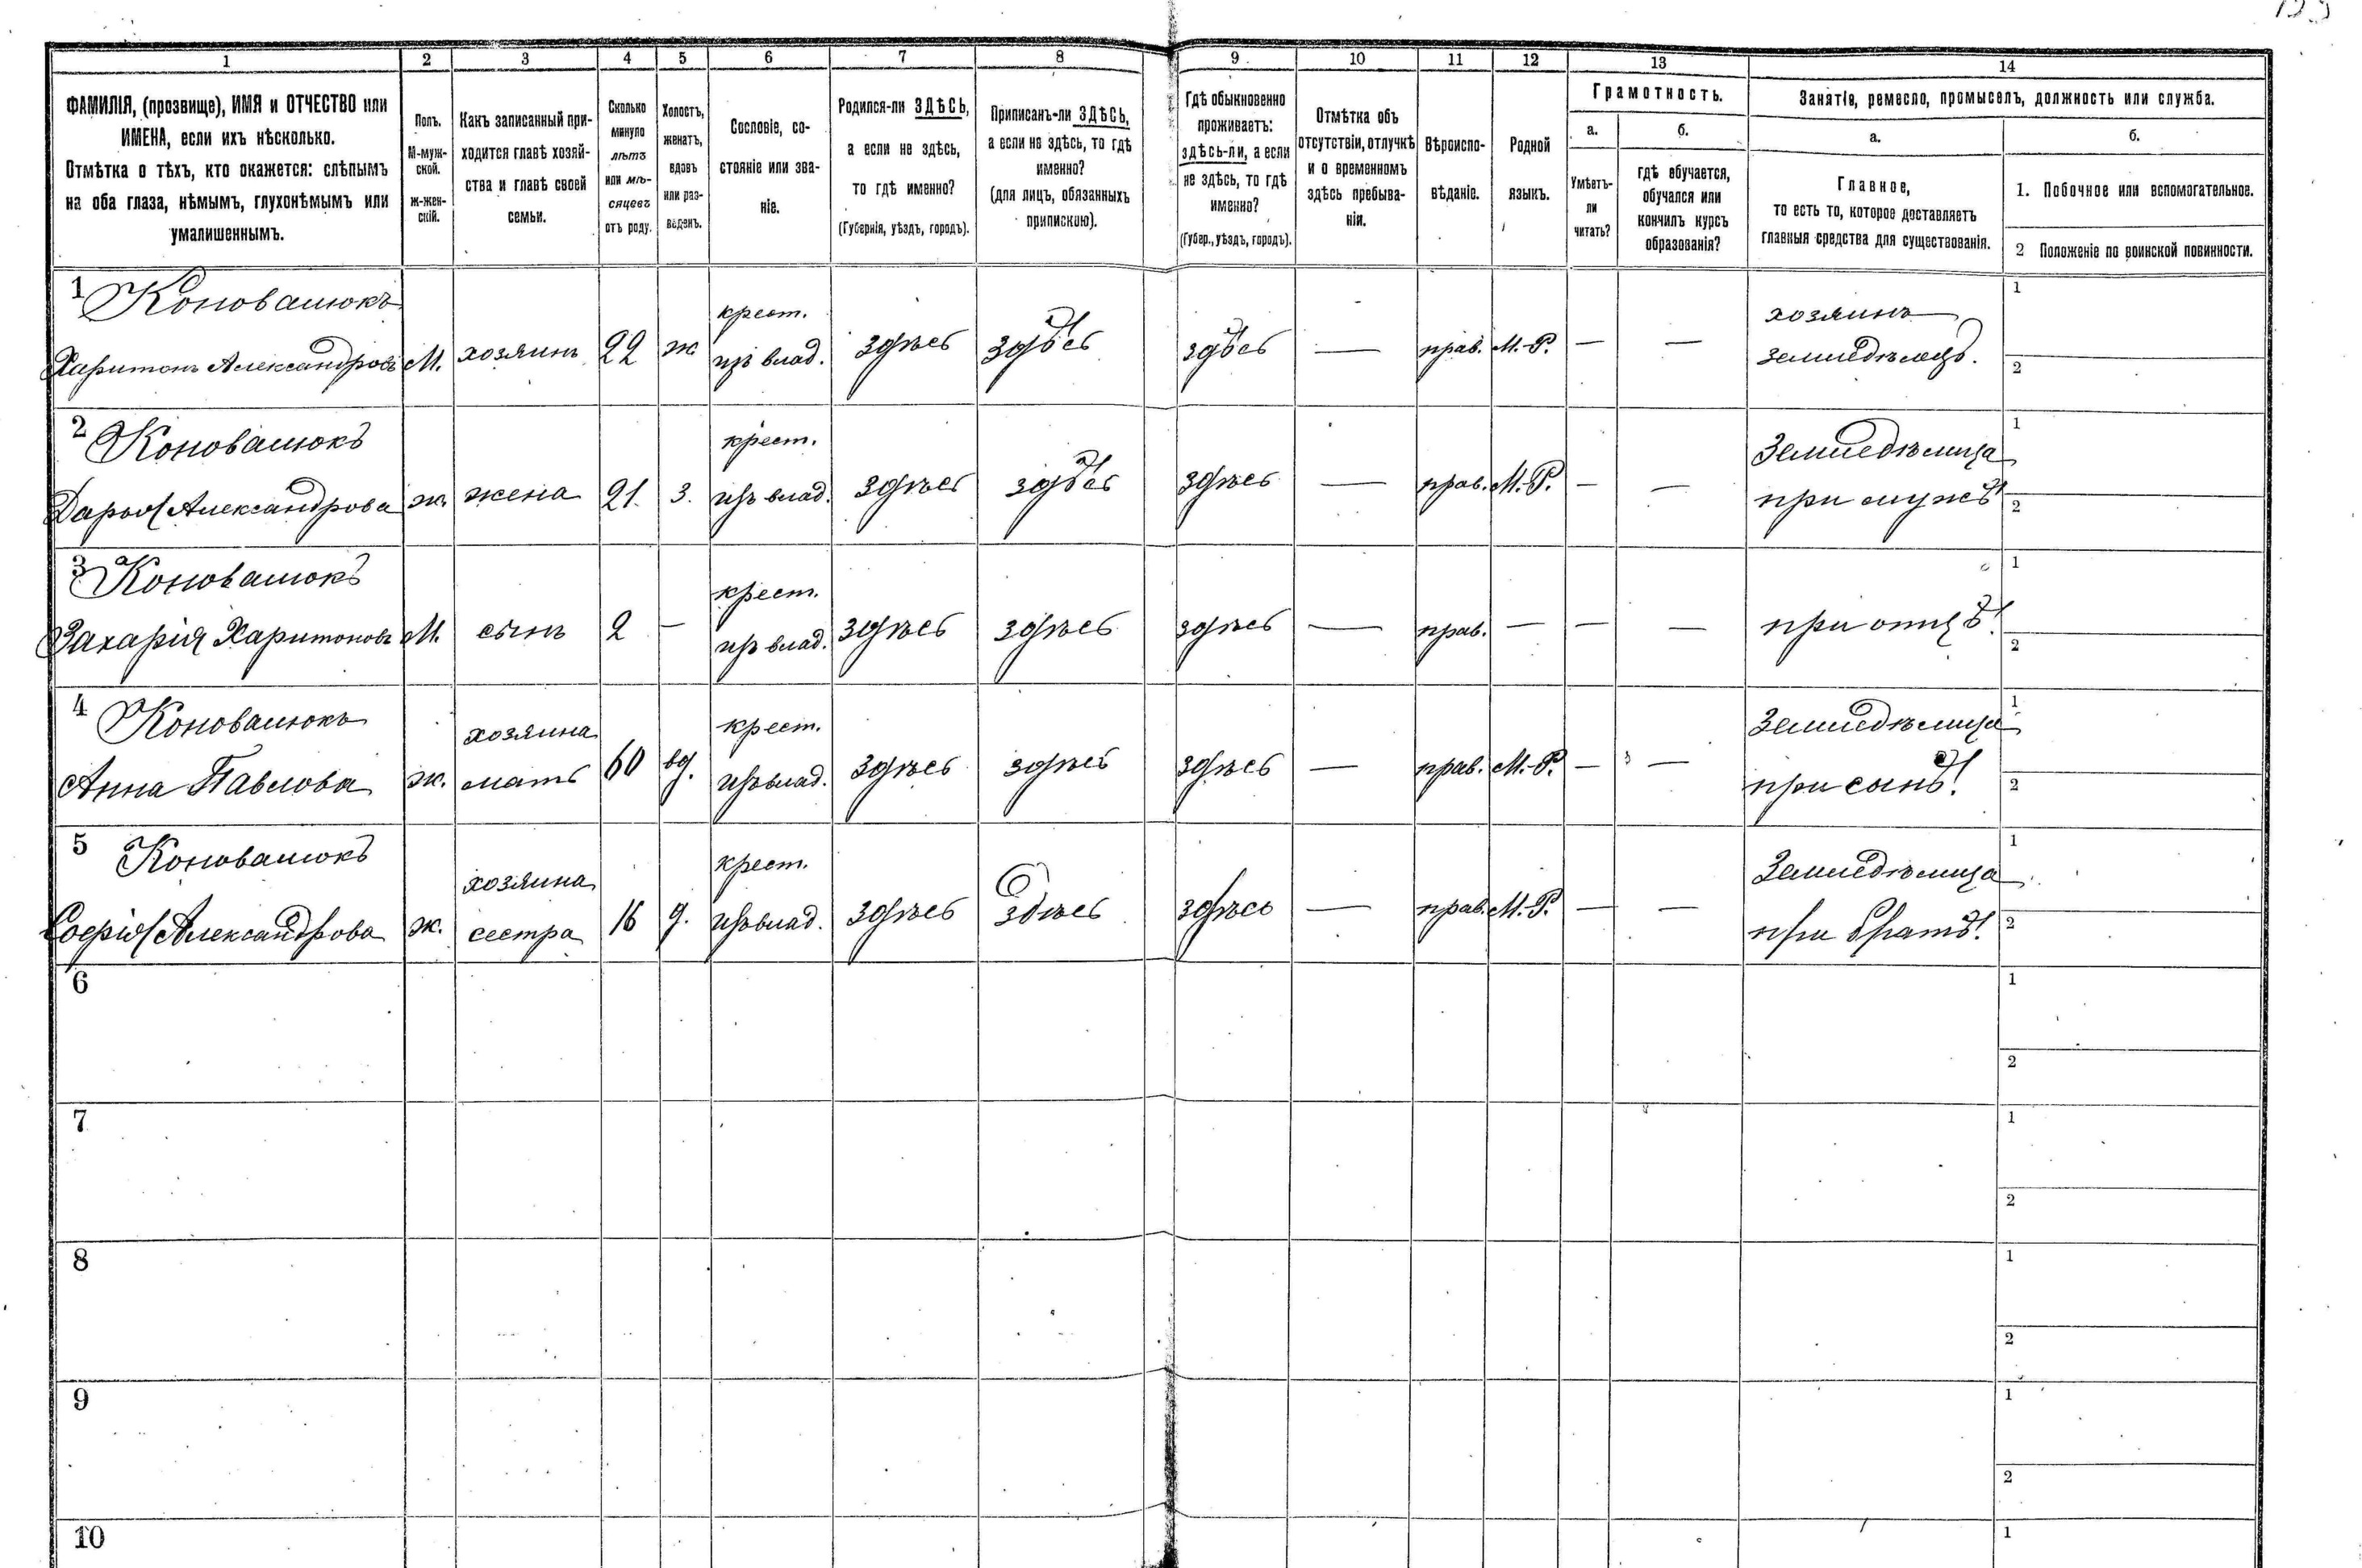 1 2 3 4 5 6 7 8 9 10 11 12 13 14
ФАМИЛІЯ, (прозвище), ИМЯ и ОТЧЕСТВО или
ИМЕНА, если ихъ нѣсколько.
Отмѣтка о тѣхъ, кто окажется: слѣпымъ
на оба глаза, нѣмымъ, глухонѣмымъ или
умалишеннымъ.
Полъ.
М-муж-
ской.
Ж-жен-
скій.
Какъ записанный при-
ходится главѣ хозяй-
ства и главѣ своей
семьи.
Сколько
минуло
лѣтъ
или мѣ-
сяцевъ
отъ роду.
Холостъ,
женатъ,
вдовъ
или раз-
веденъ.
Сословіе, со-
стояніе или зва-
ніе.
Родился-ли ЗДѢСЬ,
а если не здѣсь,
то гдѣ именно?
(Губернія, уѣздъ, городъ).
Приписанъ-ли ЗДѢСЬ,
а если не здѣсь, то гдѣ
именно?
(для лицъ, обязанныхъ
припискою).
Гдѣ обыкновенно
проживаетъ:
здѣсь-ли, а если
не здѣсь, то гдѣ
именно?
(Губер., уѣздъ, городъ).
Отмѣтка объ
отсутствіи, отлучкѣ
и о временномъ
здѣсь пребыва-
ніи.
Вѣроиспо-
вѣданіе.
Родной
языкъ.
Грамотность.
а.
Умѣетъ-
ли
читать?
б.
гдѣ обучается,
обучался или
кончилъ курсъ
образованія?
Занятіе, ремесло, промыселъ, должность или служба.
а.
Главное,
то есть то, которое доставляетъ
главныя средства для существованія.
б.
1. Побочное или вспомогательное.
2 Положеніе по воинской повинности.
1 Коновалюкъ крест. хозяинъ 1
Харитонъ Александровъ М. хозяинъ 22 ж изъ влад. здѣсь здѣсь здѣсь — прав. М.-Р. — — земледѣлецъ. 2
2 Коновалюкъ крест. Земледѣлица 1
Дарья Александрова ж. жена 21. з. изъ влад. здѣсь здѣсь здѣсь — прав. М.-Р. — — при мужѣ 2
3 Коновалюкъ крест. 1
Захарія Харитоновъ М. сынъ 2 — изъ влад. здѣсь здѣсь здѣсь — прав. — — — при отцѣ. 2
4 Коновалюкъ хозяина крест. Земледѣлица 1
Анна Павлова ж. мать 60 вд. изъ влад. здѣсь здѣсь здѣсь — прав. М.-Р. — — при сынѣ. 2
5 Коновалюкъ хозяина крест. Земледѣлица 1
Софія Александрова ж. сестра 16 д. изъ влад. здѣсь здѣсь здѣсь — прав. М.-Р. — — при братѣ. 2
6 1
2
7 1
2
8 1
2
9 1
2
10 1